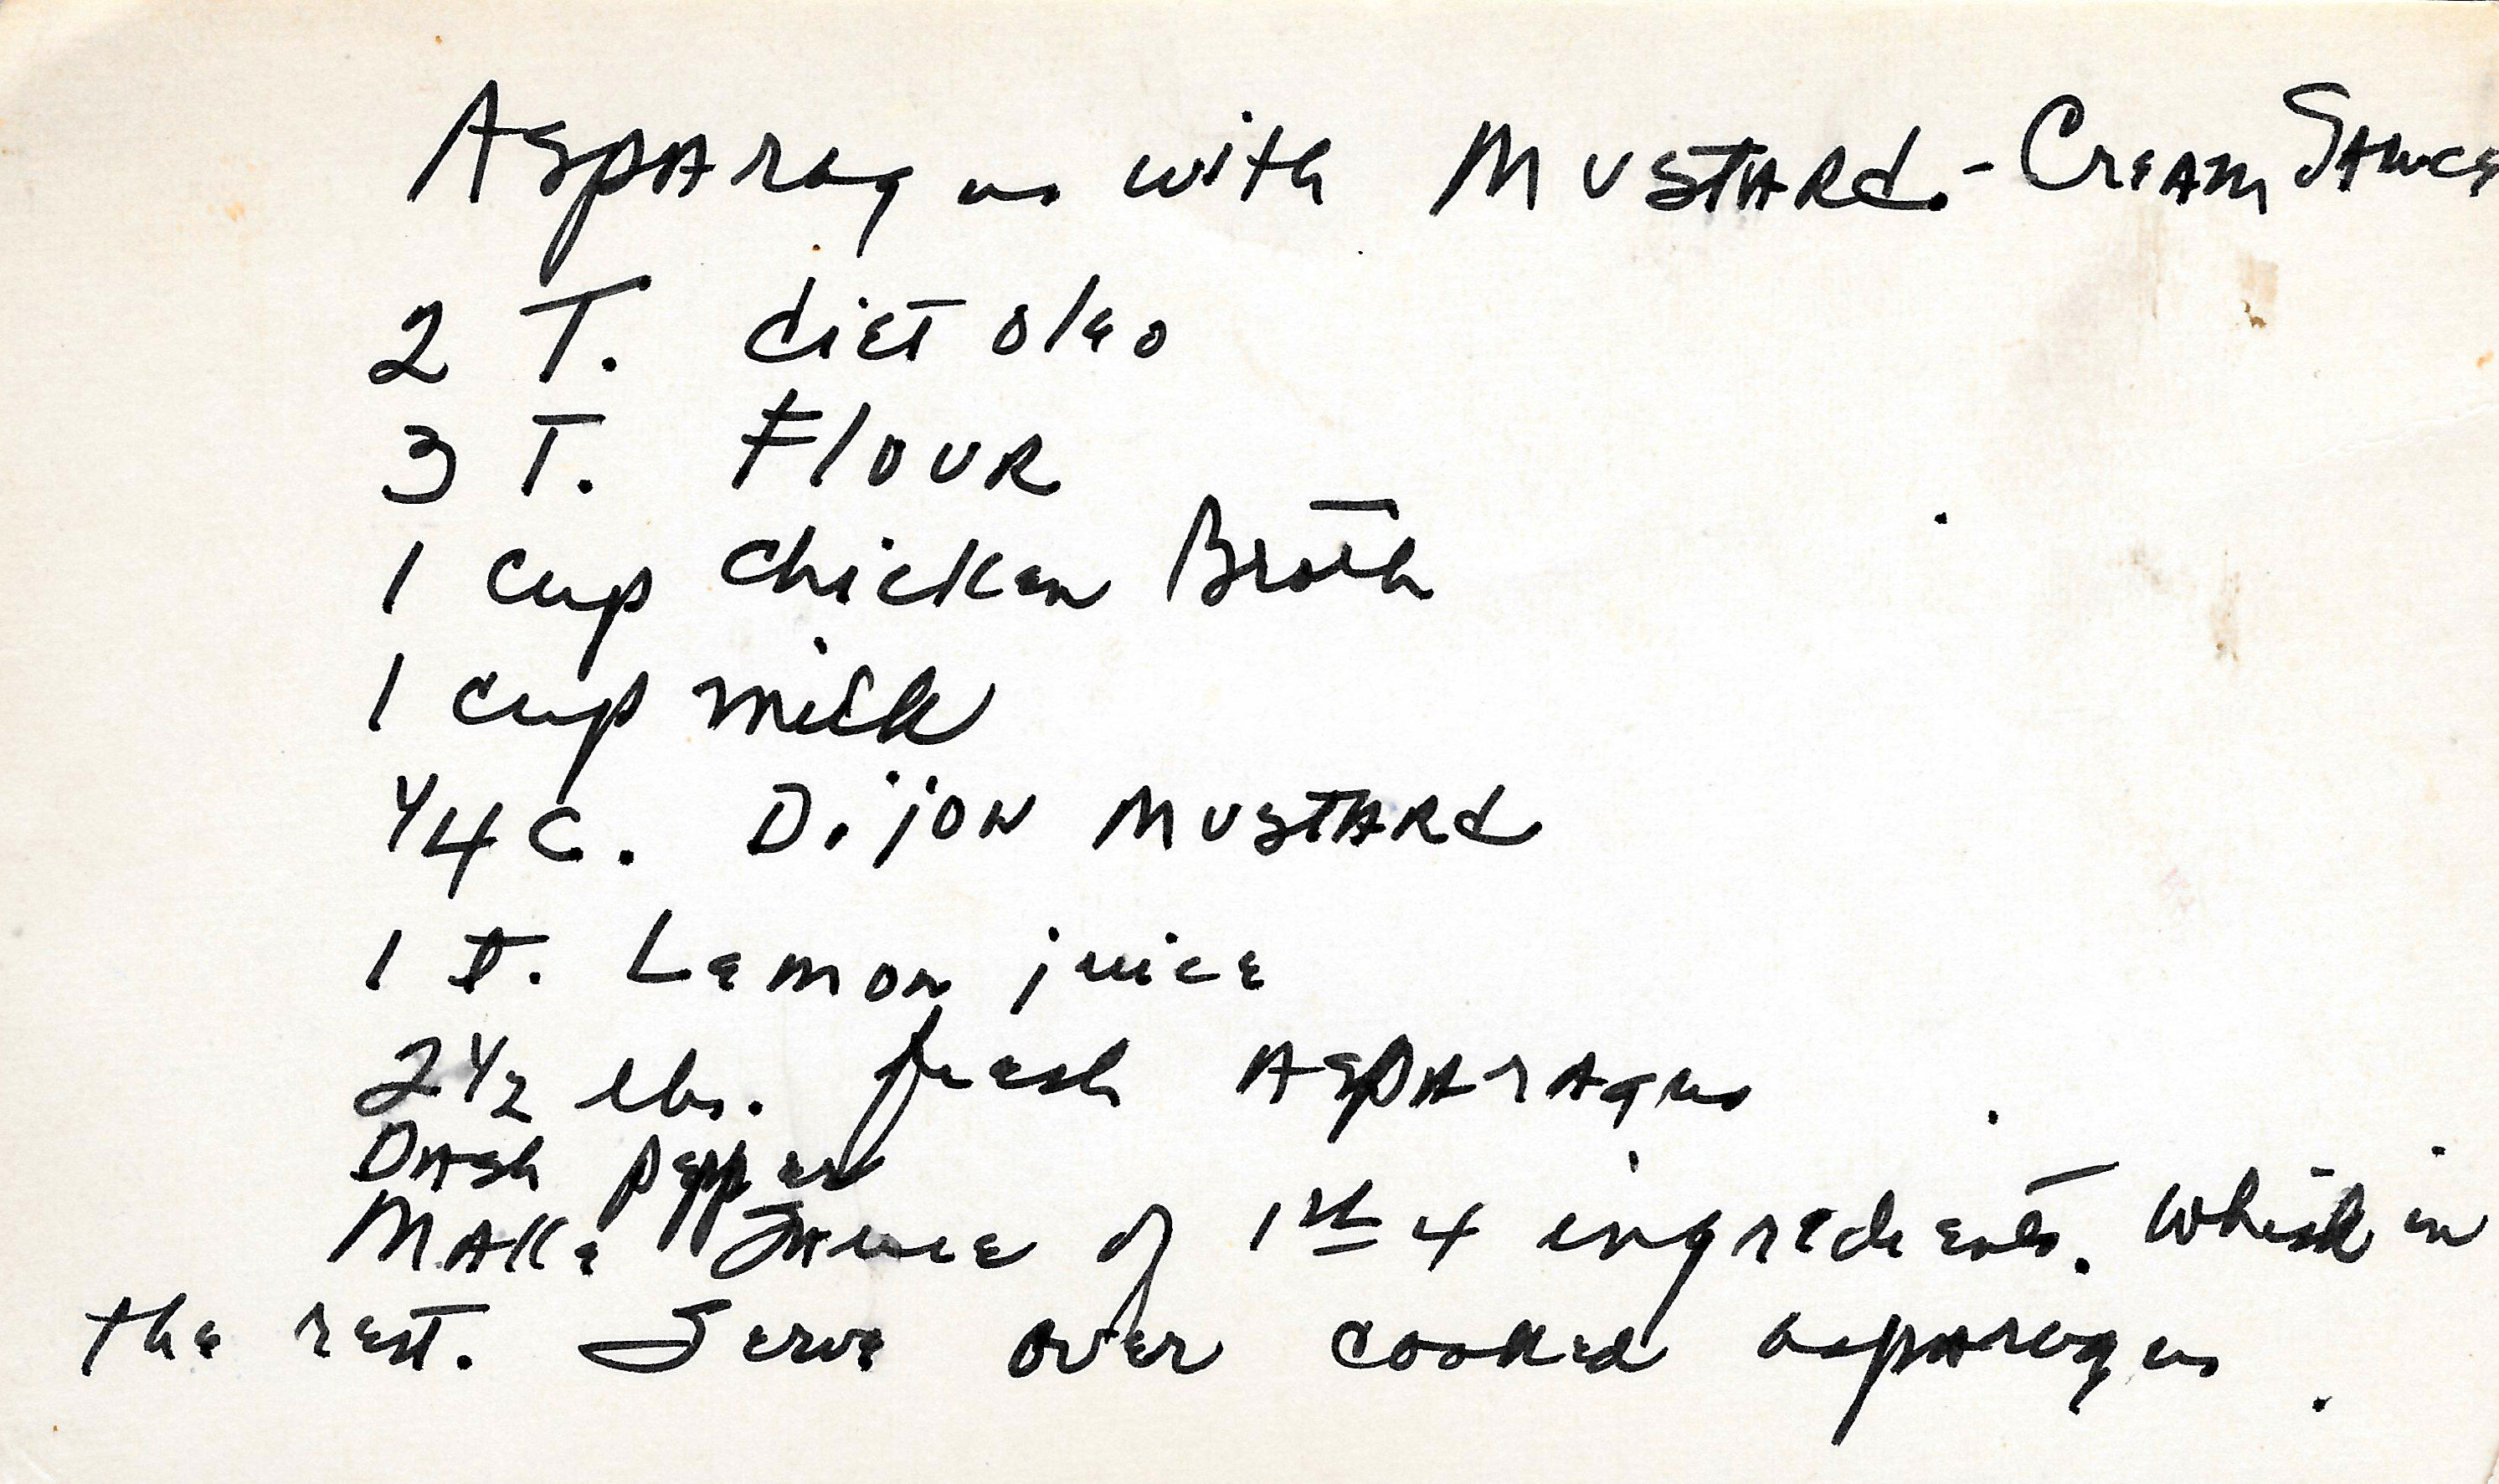 Asparagus with Mustard-Cream Sauce
2 T. diet oleo
3 T. Flour
1 cup chicken Broth
1 cup milk
1/4 c. Dijon Mustard
1 t. Lemon juice
2 1/2 lbs. fresh Asparagus
Dash pepper
Make sauce of 1st 4 ingredients. Whisk in
the rest. Serve over cooked asparagus.